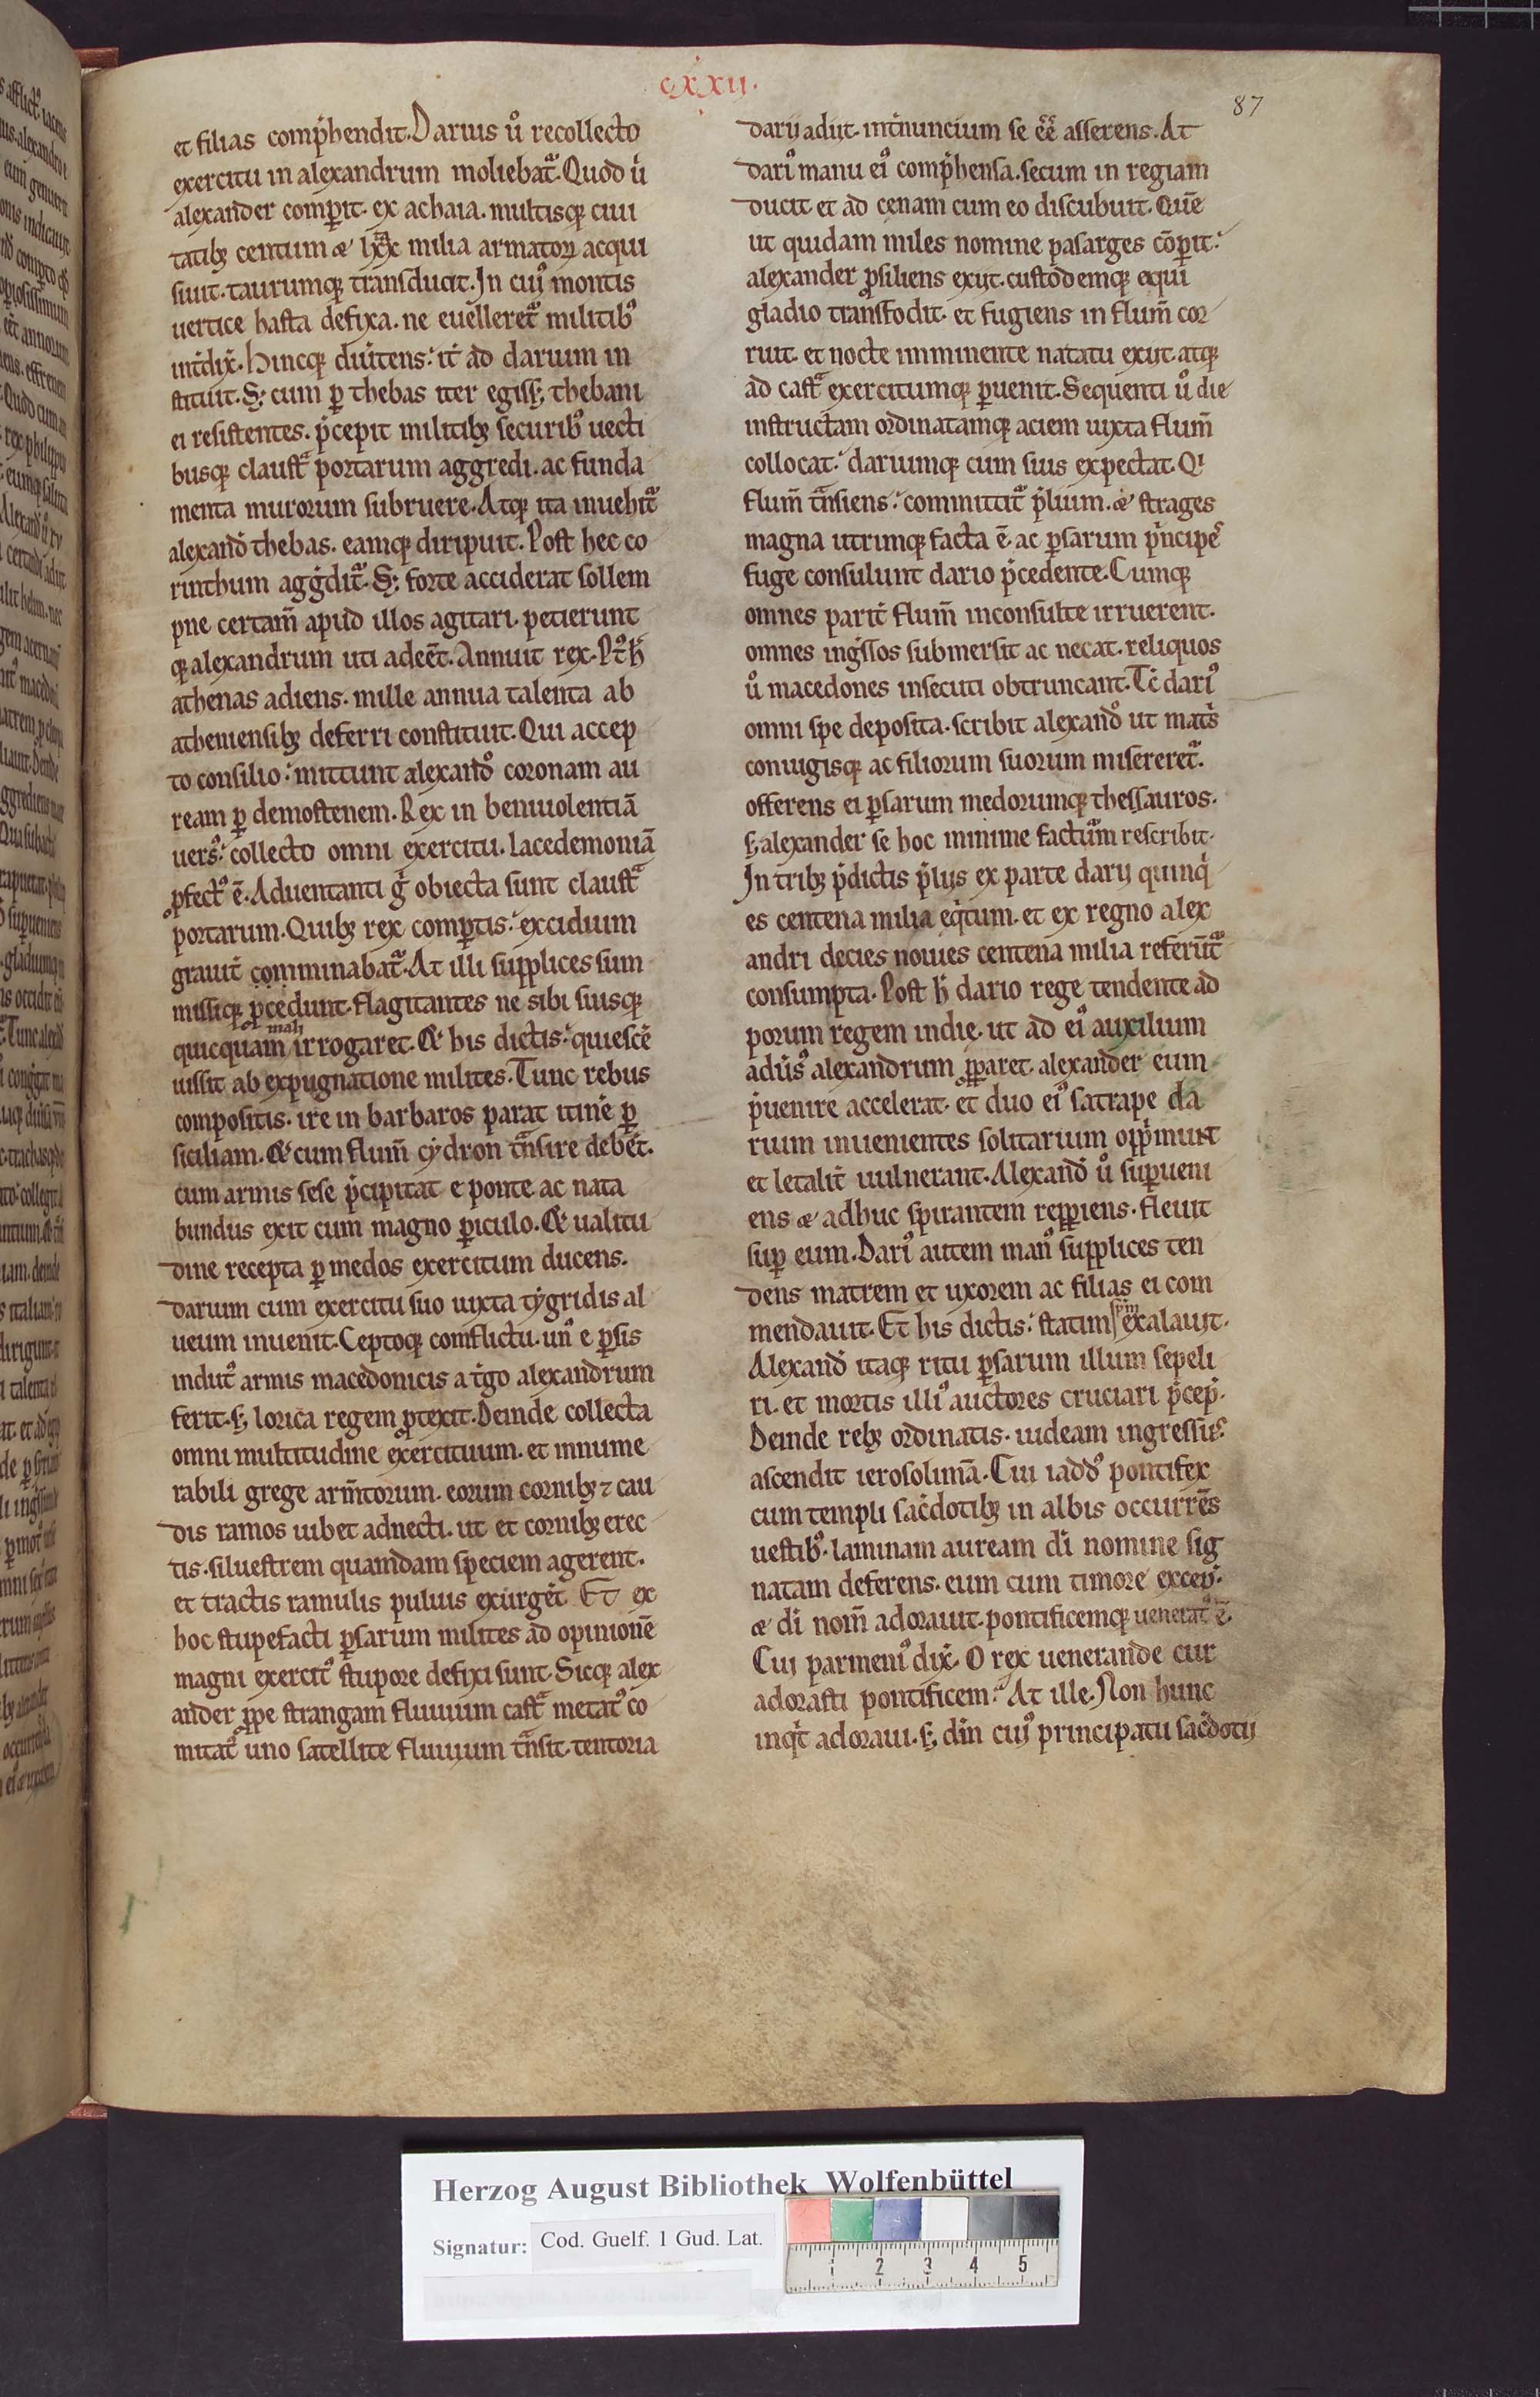 cxxii.
87
et filias comp̄hendit. Darius u̅o recollecto
exercitu in alexandrum moliebat᷑. Quod u̅
alexander comꝑit. ex achaia. multisq; ciui
tatib; centum & lxxx milia armatoꝝ acqui
siuit. taurumq; transducit. In cui᷒ montis
uertice hasta defixa. ne euelleret᷑ militib᷒
int̄dix̄. Hincq; diūtens: it̄ ad darium in
stituit. S; cum ꝑ thebas iter egiss; thebani
ei resistentes. p̄cepit militib; securib᷒ uecti
busq; claustᷓ portarum aggredi. ac funda
menta murorum subruere. Atq; ita inuehit᷑
alexand̄ thebas. eamq; diripuit. Post hec co
rinthum agḡdit᷑. S; forte acciderat sollem
pne certam̄ apud illos agitari. petierunt
q; alexandrum uti adeēt. Annuit rex. P᷒t h̄
athenas adiens. mille annua talenta ab
atheniensib; deferri constituit. Qui accep
to consilio: mittunt alexand᷒o coronam au
ream ꝑ demostenem. Rex in beniuolentiā
uers᷒: collecto omni exercitu. lacedemoniā
ꝓfect᷒ ē. Aduentanti g̊ obiecta sunt claustᷓ
portarum. Quib; rex comꝑtis: excidium
grauit̄ comminabat᷑. At illi supplices sum
missiq; ꝓcedunt. flagitantes ne sibi suisq;
mali
quicquam irrogaret. & his dictis: quiescē
iussit ab expugnatione milites. Tunc rebus
compositis. ire in barbaros parat itinē ꝑ
siciliam. & cum flum̄ cydron tᷓnsire debēt.
cum armis sese p̄cipitat e ponte ac nata
bundus exit cum magno ꝑiculo. & ualitu
dine recepta ꝑ medos exercitum ducens.
darium cum exercitu suo iuxta tygridis al
ueum inuenit. Ceptoq; comflictu. un᷒ e ꝑsis
indut᷒ armis macedonicis a t̄go alexandrum
ferit. s; lorica regem ꝓtexit. Deinde collecta
omni multitudine exercituum. et innume
rabili grege arm̄torum. eorum cornib; ⁊ cau
dis ramos iubet adnecti. ut et cornib; erec
tis. siluestrem quamdam speciem agerent.
et tractis ramulis puluis exurgēt. Et ex
hoc stupefacti ꝑsarum milites ad opinionē
magni exercit᷒ stupore defixi sunt. Sicq; alex
ander ꝓpe strangam fluuium castᷓ metat᷒ co
mitat᷒ uno satellite fluuium tᷓnsit. tentoria
darij adijt. int̄nuncium se ēē asserens. At
dari᷒ manu ei᷒ comp̄hensa. secum in regiam
ducit et ad cenam cum eo discubuit. Quē
ut quidam miles nomine pasarges cōꝑit:
alexander ꝓsiliens exijt. custodemq; equi
gladio transfodit. et fugiens in flum̄ cor
ruit. et nocte imminente natatu exijt. atq;
ad castᷓ exercitumq; ꝑuenit. Sequenti u̅o die
instructam ordinatamq; aciem iuxta flum̄
collocat: dariumq; cum suis expectat. Qⁱ
flum̄ tᷓnsiens: committit᷑ p̄lium. & strages
magna utrimq; facta ē. ac ꝑsarum p̄ncipes
fuge consulunt dario p̄cedente. Cumq;
omnes parit̄ flum̄ inconsulte irruerent.
omnes inḡssos submersit ac necat. reliquos
u̅o macedones insecuti obtruncant. Tc̄ dari᷒
omni spe deposita. scribit alexand᷒o ut mat̄s
coniugisq; ac filiorum suorum misereret᷑.
offerens ei ꝑsarum medorumq; thessauros.
s; alexander se hoc minime factūm rescribit.
In trib; p̄dictis p̄lijs ex parte darij quinq̄
es centena milia eq̄tum. et ex regno alex
andri decies nouies centena milia referūt᷑
consumpta. Post h̄ dario rege tendente ad
porum regem indie. ut ad ei᷒ auxilium
adūs᷒ alexandrum ꝓꝑaret. alexander eum
p̄uenire accelerat. et duo ei᷒ satrape da
rium inuenientes solitarium opp̄munt
et letalit̄ uulnerant. Alexand̄ u̅o suꝑueni
ens & adhuc spirantem repꝑiens. fleuit
suꝑ eum. Dari᷒ autem man᷒ supplices ten
dens matrem et uxorem ac filias ei com
mendauit. Et his dictis: statim sp̄m exalauit.
Alexand̄ itaq; ritu ꝑsarum illum sepeli
ri. et mortis illi᷒ auctores cruciari p̄cep̄.
Deinde reb; ordinatis. iudeam ingressus
ascendit ierosolimā. Cui iadd᷒ pontifex
cum templi sac̄dotib; in albis occurrēs
uestib᷒. laminam auream dī nomine sig
natam deferens. eum cum timore excep̄.
& dī nom̄ adorauit. pontificemq; uenerat᷒ ē.
Cui parmeni᷒ dix̄. O rex uenerande cur
adorasti pontificem: At ille. Non hunc
inqt̄ adoraui. s; dīn cui᷒ principatu sac̄dotij
Herzog August Bibliothek Wolfenbüttel
Signatur: Cod. Guelf. 1 Gud. Lat.
1 2 3 4 5